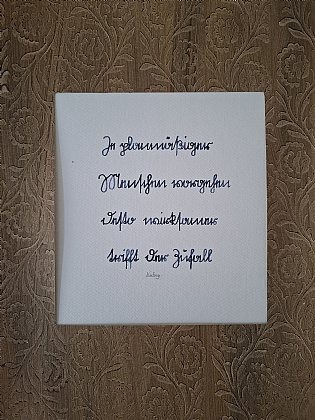 Je planmäßiger
Menschen vorgehen
desto wirksamer
trifft der Zufall